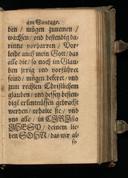 am Sontage.
ben / mögen zunemen /
wachsen / und beständig da-
rinne verharren / Ver-
leihe auch mein Gott / das
alle die / so noch im Glau-
ben irrig und vorführet
seind / mügen bekeret und
zum rechten Christlichem
glauben / und dessen bestän-
diger erkentnissen gebracht
werden / erhalte sie / und
uns alle / in CHRISTO
JHESU / deinem lie-
ben SOHN / das wir als
so